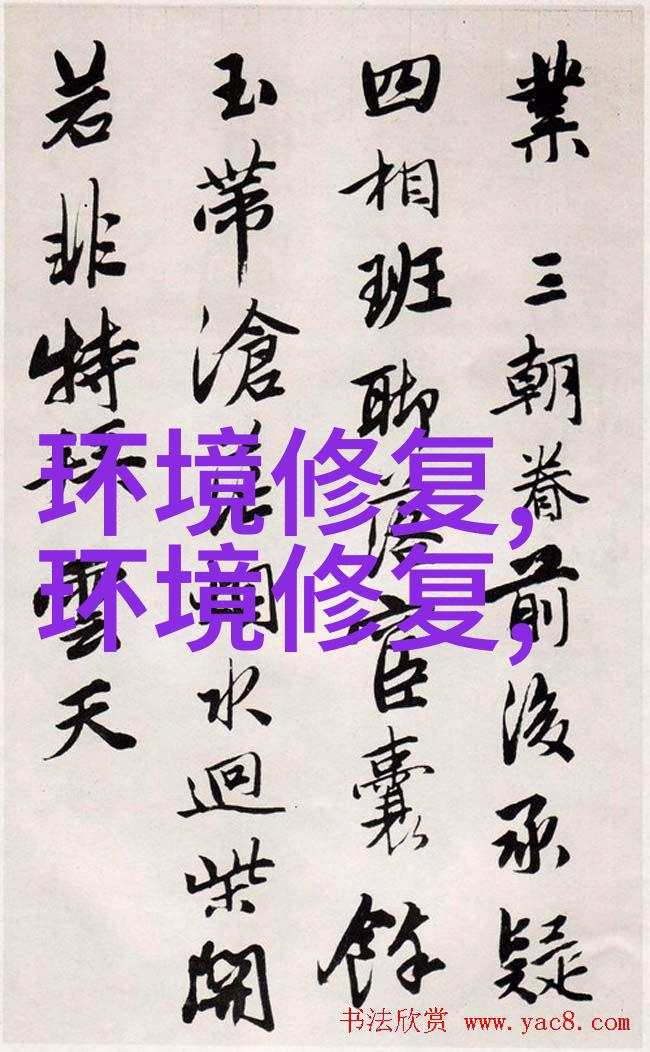 業 三朝眷前後承疑
四相班聯 宦囊餘
玉帶滄 水迴柴開
若非特 雲天
环境修复,
环境修复,
书法欣赏 www.yac8.com